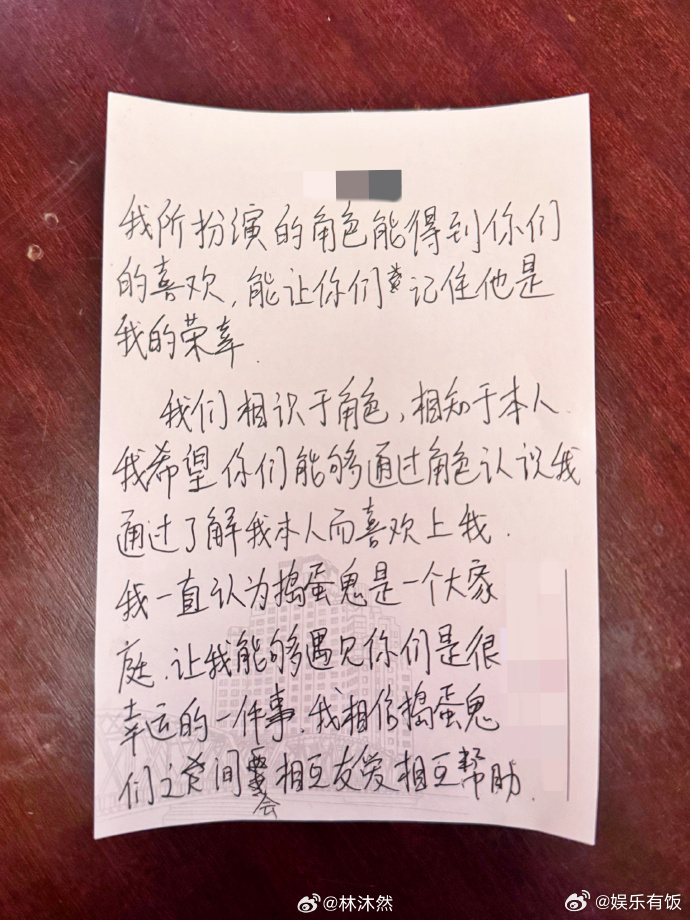 我所扮演的角色能得到你们
的喜欢,能让你们记住他是
我的荣幸.
我们相识于角色,相知于本人.
我希望你们能够通过角色认识我
通过了解我本人而喜欢上我.
我一直认为捣蛋鬼是一个大家
庭.让我能够遇见你们是很
幸运的一件事.我相信捣蛋鬼
们之间会相互友爱相互帮助.
@林沐然
@娱乐有饭